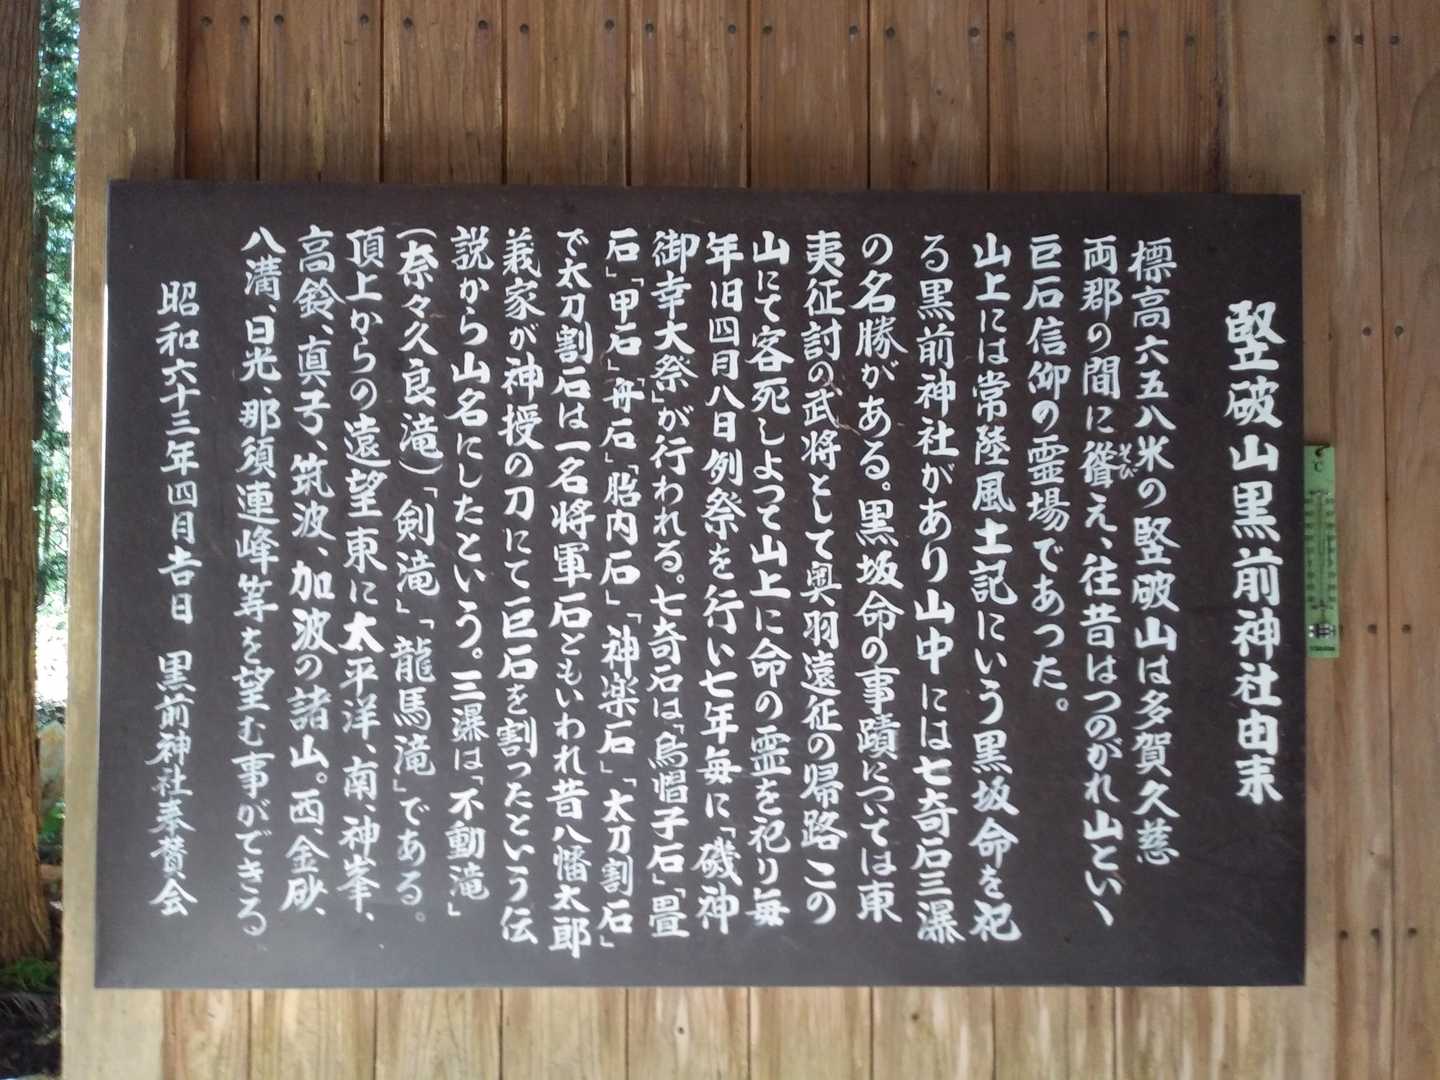 竪破山黒前神社由来
標高六五八米の竪破山は多賀久慈
両郡の間に聳え、往昔はつのがれ山といゝ
そび
巨石信仰の霊場であった。
山上には常陸風土記にいう黒坂命を祀
る黒前神社があり山中には七奇石三瀑
の名勝がある。黒坂命の事蹟については東
夷征討の武将として奥羽遠征の帰路この
山にて客死しよって山上に命の霊を祀り毎
年旧四月八日例祭を行い七年毎に「磯神
御幸大祭」が行われる。七奇石は「烏帽子石」「畳
石」「甲石」「舟石」「胎内石」「神楽石」「太刀割石」
で太刀割石は一名将軍石ともいわれ昔八幡太郎
義家が神授の刀にて巨石を割ったという伝
説から山名にしたという。三瀑は「不動滝」
(奈々久良滝)「剣滝」「龍馬滝」である。
頂上からの遠望東に太平洋、南、神峯、
高鈴、真弓、筑波、加波の諸山。西、金砂、
八溝、日光、那須連峰等を望む事ができる
昭和六十三年四月吉日 黒前神社奉賛会
℃